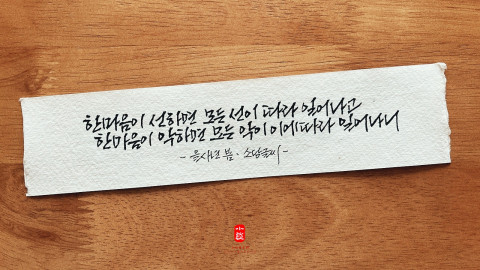 한마음이 선하면 모든 선이 따라 일어나고
한마음이 악하면 모든 악이 이에 따라 일어나니
- 을사년 봄 · 소담글씨 -